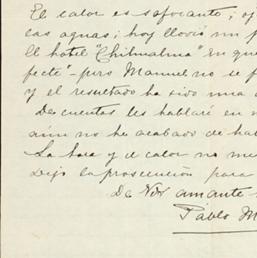 El calor es sofocante; oj
cas aguas; hoy llovió un p
El hotel "Chihmalma" en que
fecté - pero Manuel no se f
y el resultado ha sido una
De cuentos les hablaré en
aún no he acabado de hab
La hora y el calor no me
Dejo la prosecución para
De Vds amante
Pablo M